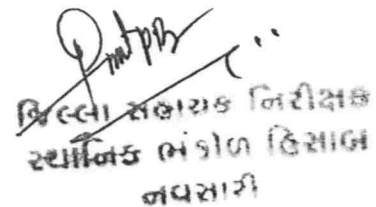 જિલ્લા સહાયક નિરીક્ષક
સ્થાનિક ભંડોળ હિસાબ
નવસારી